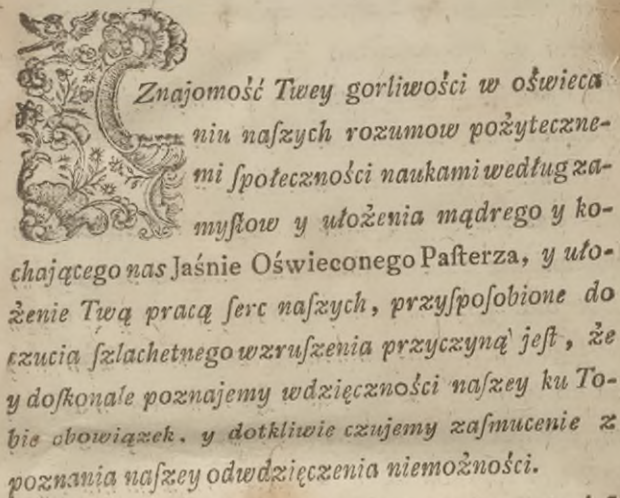 Znajomość Twey gorliwości w oświeca
niu naſzych rozumow pożyteczne-
mi ſpołeczności naukami według za-
myſłow y ułożenia mądrego y ko-
chającego nas Jaśnie Oświeconego Paſterza, y uło-
żenie Twą pracą ſerc naſzych, przyſpoſobione do
czucia ſzlachetnego wzruſzenia przyczyną jeſt, że
y doſkonale poznajemy wdzięczności naſzey ku To-
bie obowiązek. y dotkliwie czujemy zaſmucenie z
poznania naſzey odwdzięczenia niemożności.